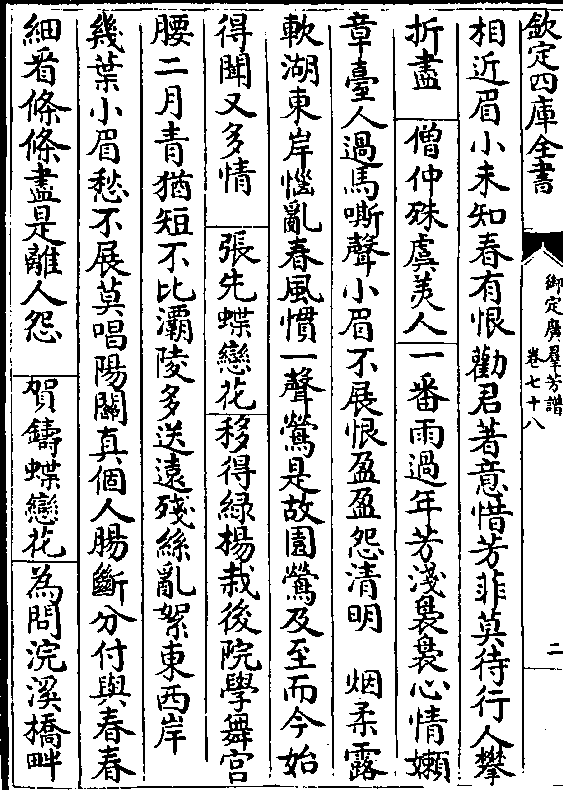 欽定四庫全書
御定廣羣芳譜
卷七十八
二
相近眉小未知春有恨勸君著意惜芳菲莫待行人攀
折盡　僧仲殊虞美人　一番雨過年芳淺裊裊心情嬾
章臺人過馬嘶聲小眉不展恨盈盈怨清明　烟柔露
軟湖東岸惱亂春風慣一聲鶯是故園鶯及至而今始
得聞又多情　張先蝶戀花　移得綠楊栽後院學舞宫
腰二月青猶短不比灞陵多送遠殘絲亂絮東西岸
幾葉小眉愁不展莫唱陽關真個人腸斷分付與春春
細看條條盡是離人怨　賀鑄蝶戀花　為問浣溪橋畔